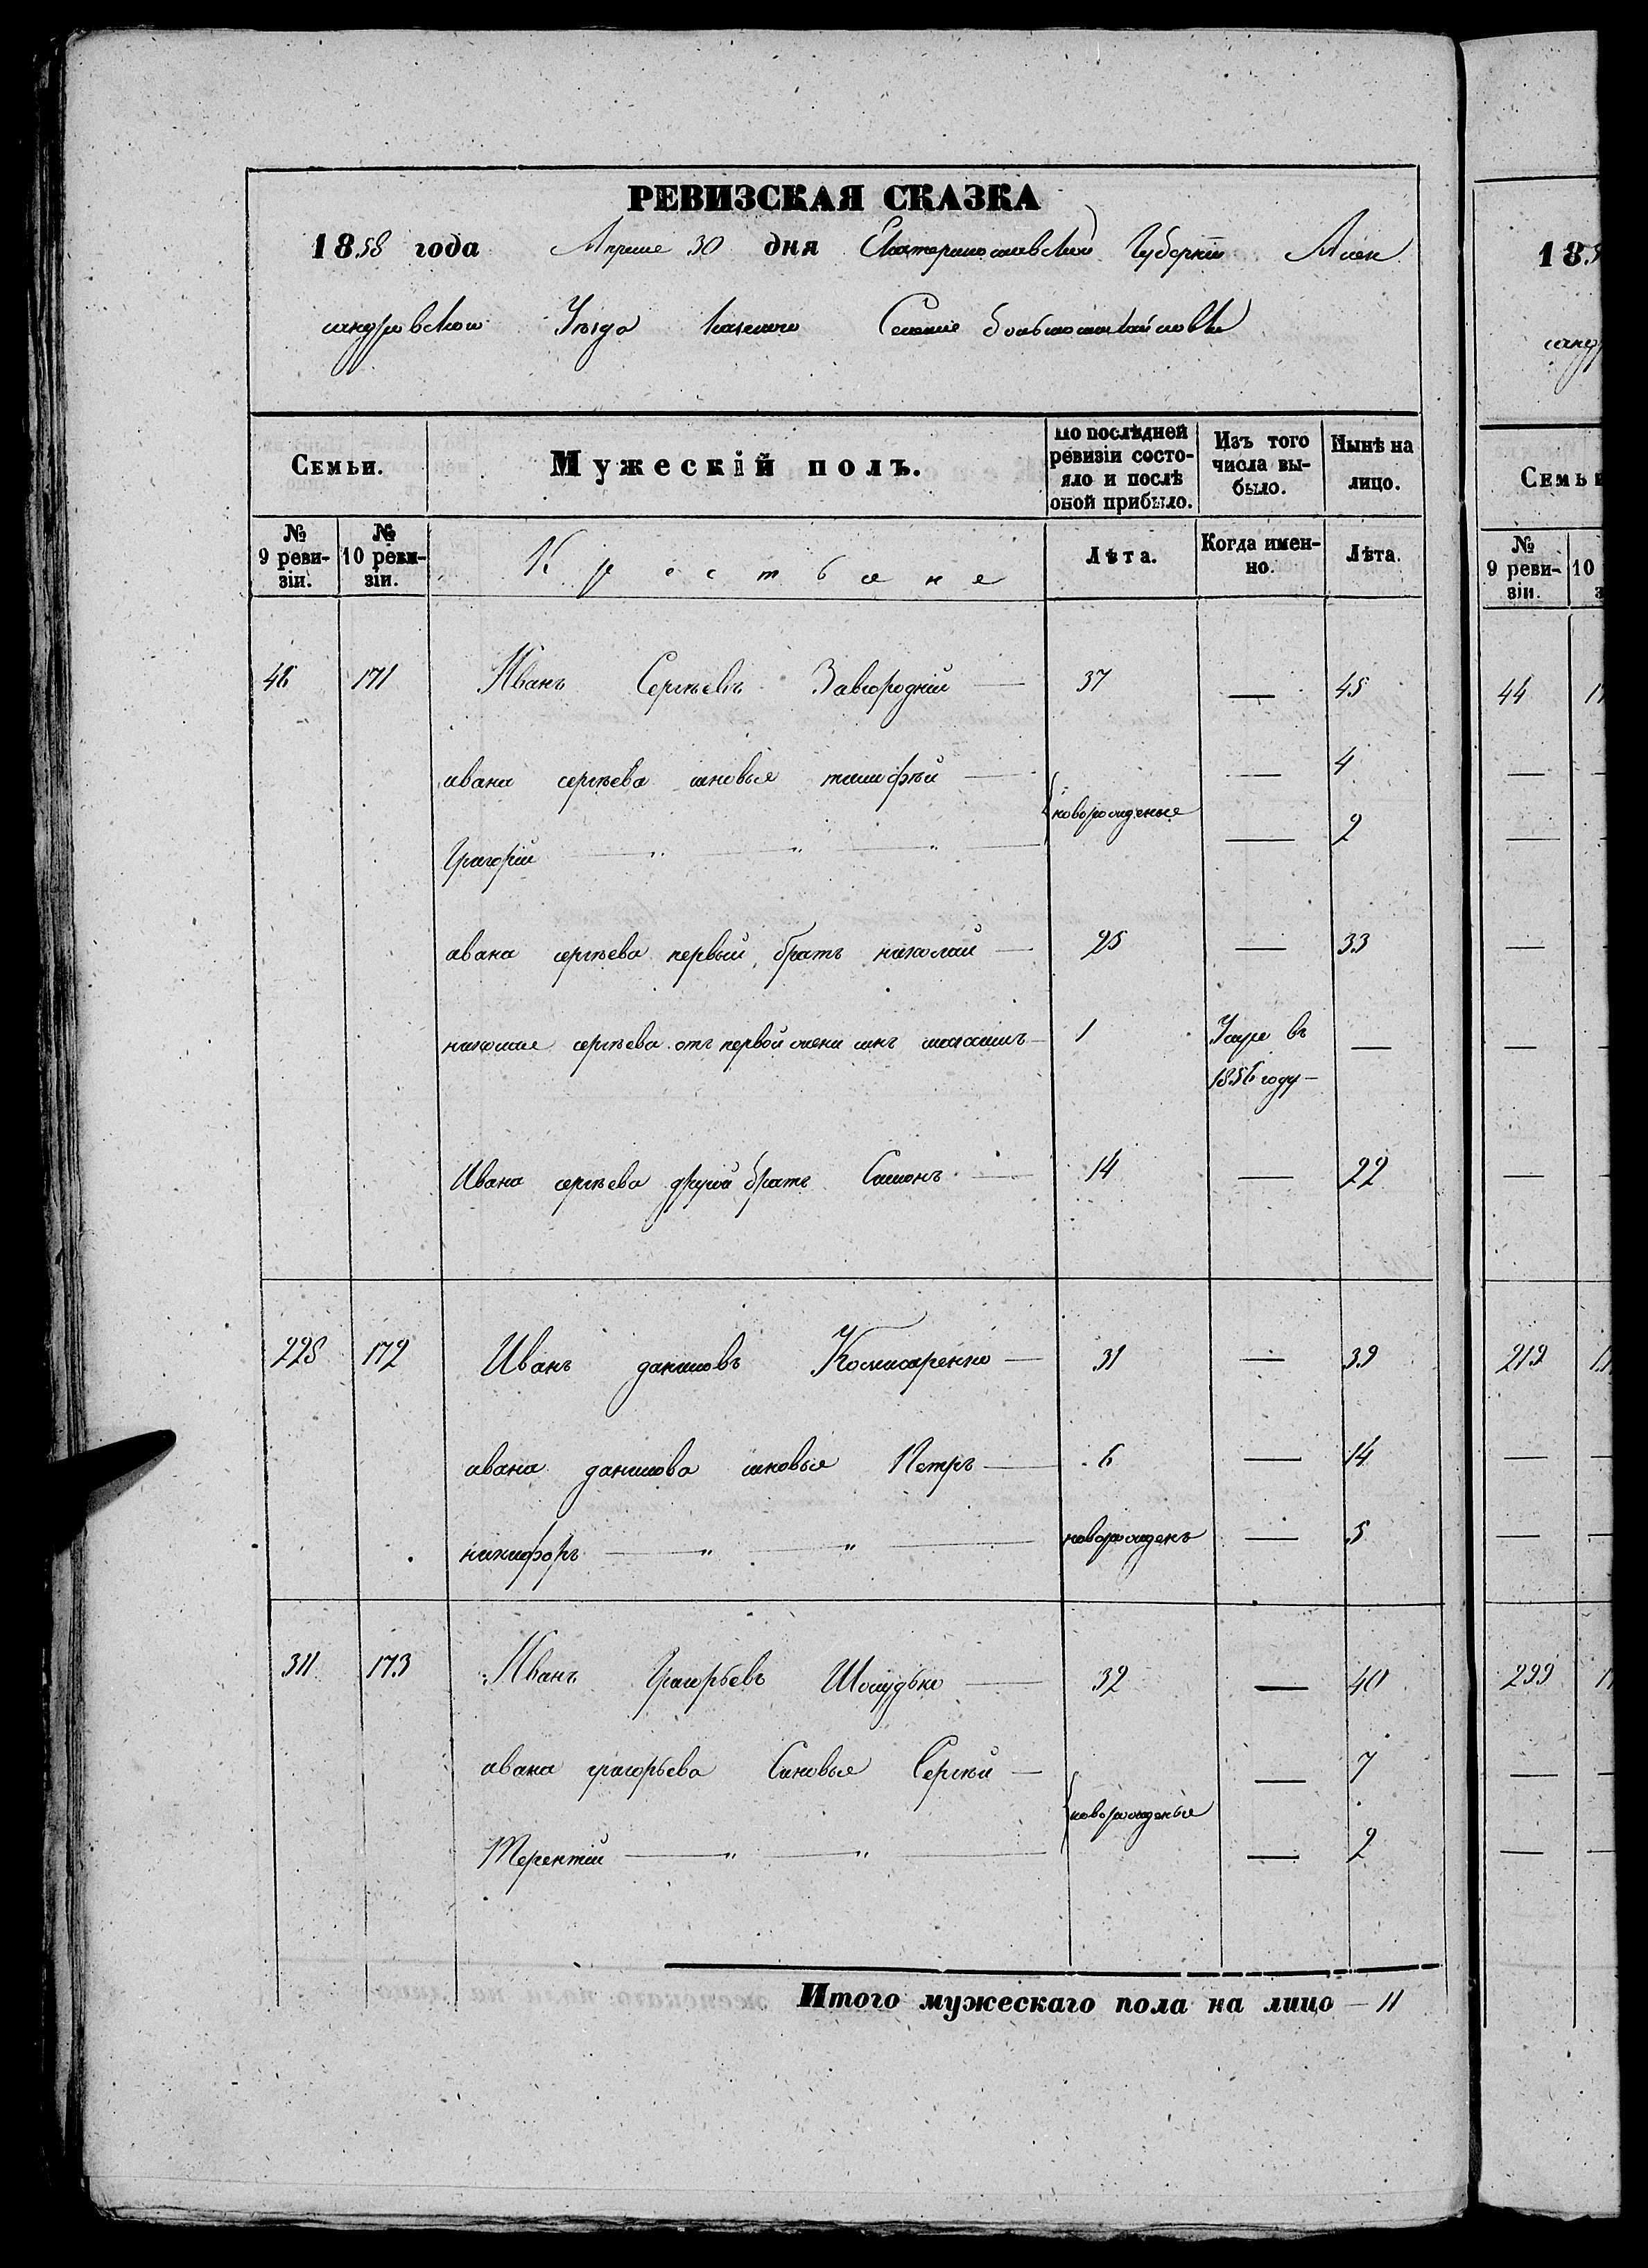 РЕВИЗСКАЯ СКАЗКА
1858 года Апреля 30 дня Екатеринославской Губернии Алек
сандровскаго Уѣзда казенаго Селения большомихайловки
Семьи. Мужескій полъ. По послѣдней ревизіи состо- Изъ того Нынѣ на
яло и послѣ оной прибыло. числа вы-было. лицо.
№ 9 реви-зіи. № 10 реви-зіи. Крестьяне Лѣта. Когда имен-но. Лѣта.
46 171 Иванъ Сергѣевъ Завгородній — 37 — 45
ивана сергѣева сыновья тимофѣй — — 4
новорожденые
Григорій — " — " — " — — 2
ивана сергѣева первый братъ николай — 25 — 33
николая сергѣева отъ первой жены сынъ 1 Умре въ —
1856 году —
Ивана сергѣева другой братъ Симонъ — 14 — 22
225 172 Иванъ даниловъ Комисаренко — 31 — 39
ивана данилова сыновья Петръ — 6 — 14
никифоръ — " — " — новорожденъ — 5
311 173 Иванъ Григорьевъ — 32 — 40
ивана григорьева Сыновья Сергѣй — — 7
новорожденые
Терентій — " — " — — 2
Итого мужескаго пола на лицо — 11
18
санд
Семьи
№ 9 реви-зіи. 10
44
219
299